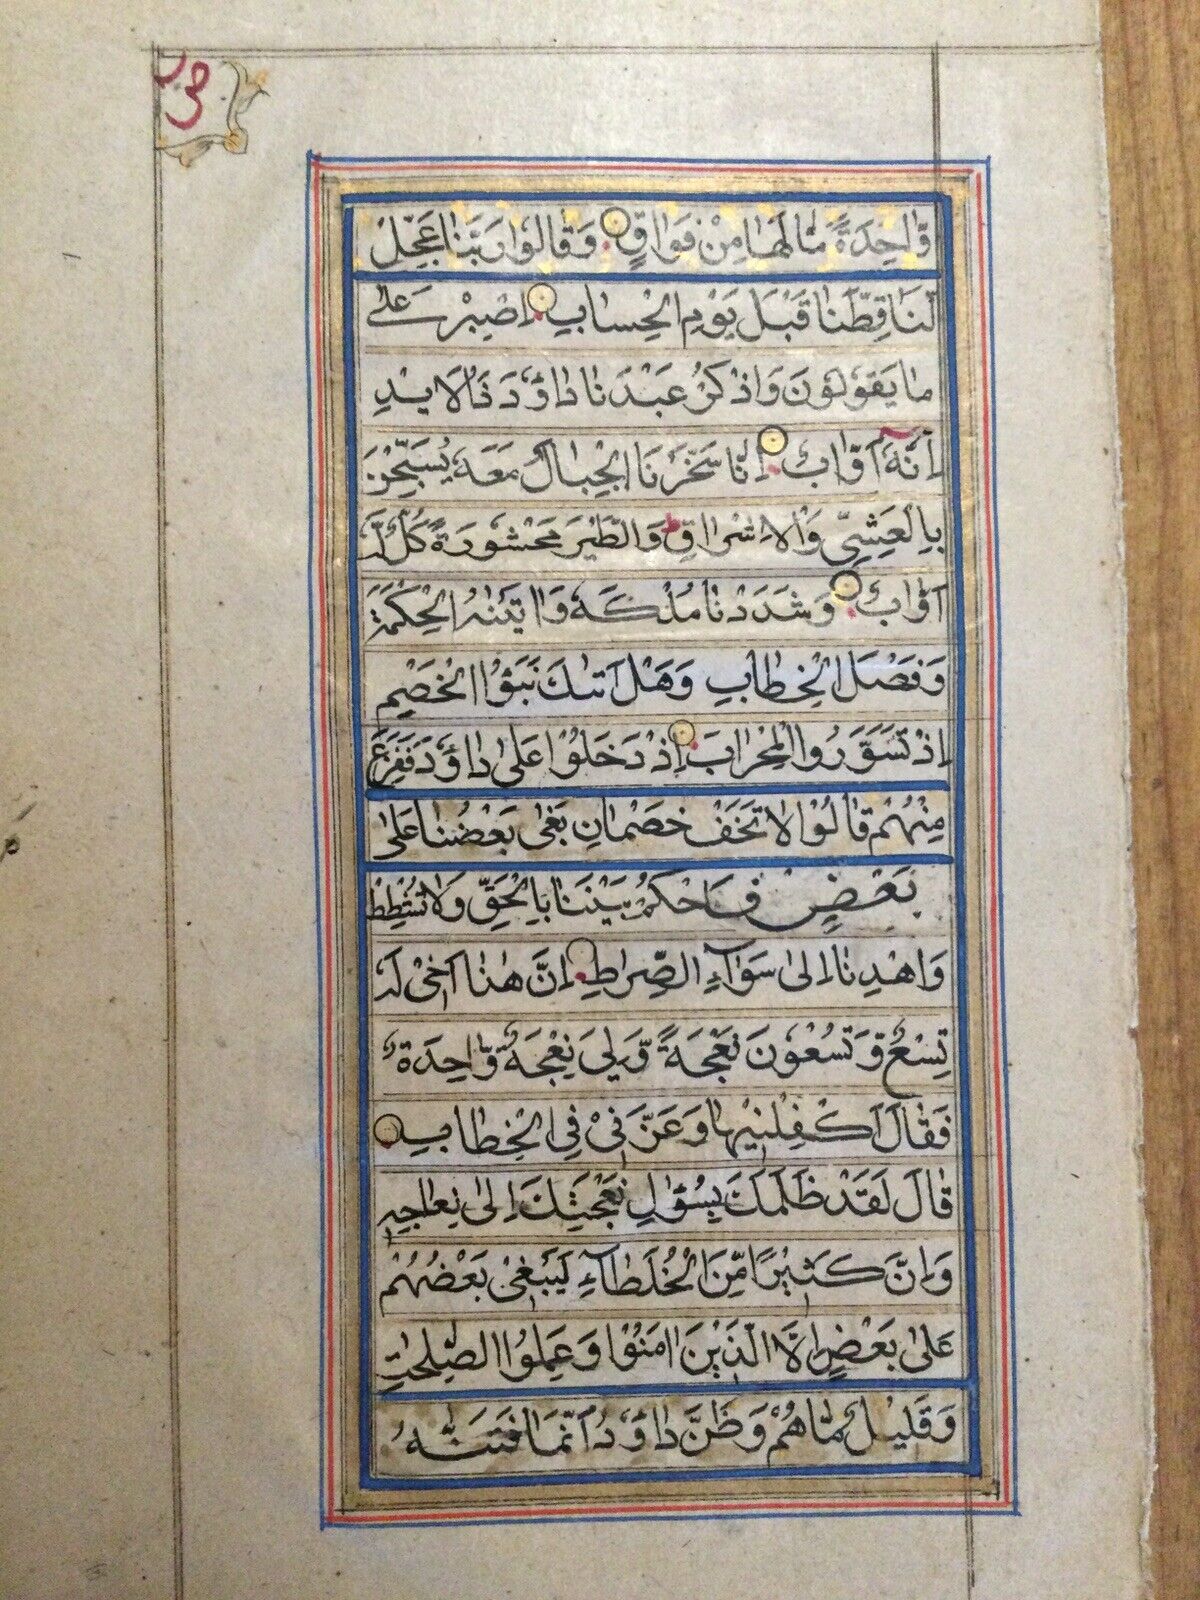 وَّاحِدَةً مَّا لَهَا مِنْ فَوَاقٍ وَقَالُوا رَبَّنَا عَجِّلْ
لَّنَا قِطَّنَا قَبْلَ يَوْمِ الْحِسَابِ اِصْبِرْ عَلٰى
مَا يَقُولُونَ وَاذْكُرْ عَبْدَنَا دَاوٗدَ ذَا الْاَيْدِ
اِنَّهٗٓ اَوَّابٌ اِنَّا سَخَّرْنَا الْجِبَالَ مَعَهٗ يُسَبِّحْنَ
بِالْعَشِيِّ وَالْاِشْرَاقِ وَالطَّيْرَ مَحْشُورَةً كُلٌّ لَّهٗ
اَوَّابٌ وَشَدَدْنَا مُلْكَهٗ وَاٰتَيْنٰهُ الْحِكْمَةَ
وَفَصْلَ الْخِطَابِ وَهَلْ اَتٰىكَ نَبَؤُا الْخَصْمِ
اِذْ تَسَوَّرُوا الْمِحْرَابَ اِذْ دَخَلُوْا عَلٰى دَاوٗدَ فَفَزِعَ
مِنْهُمْ قَالُوْا لَا تَخَفْ خَصْمَانِ بَغٰى بَعْضُنَا عَلٰى
بَعْضٍ فَاحْكُمْ بَيْنَنَا بِالْحَقِّ وَلَا تُشْطِطْ
وَاهْدِنَا اِلٰى سَوَآءِ الصِّرَاطِ اِنَّ هٰذَا اَخِيْ لَهٗ
تِسْعٌ وَّتِسْعُوْنَ نَعْجَةً وَّلِيَ نَعْجَةٌ وَّاحِدَةٌ
فَقَالَ اَكْفِلْنِيْهَا وَعَزَّنِيْ فِي الْخِطَابِ
قَالَ لَقَدْ ظَلَمَكَ بِسُؤَالِ نَعْجَتِكَ اِلٰى نِعَاجِهٖ
وَاِنَّ كَثِيْرًا مِّنَ الْخُلَطَآءِ لَيَبْغِيْ بَعْضُهُمْ
عَلٰى بَعْضٍ اِلَّا الَّذِيْنَ اٰمَنُوْا وَعَمِلُوا الصّٰلِحٰتِ
وَقَلِيْلٌ مَّا هُمْ وَظَنَّ دَاوٗدُ اَنَّمَا فَتَنّٰهُ